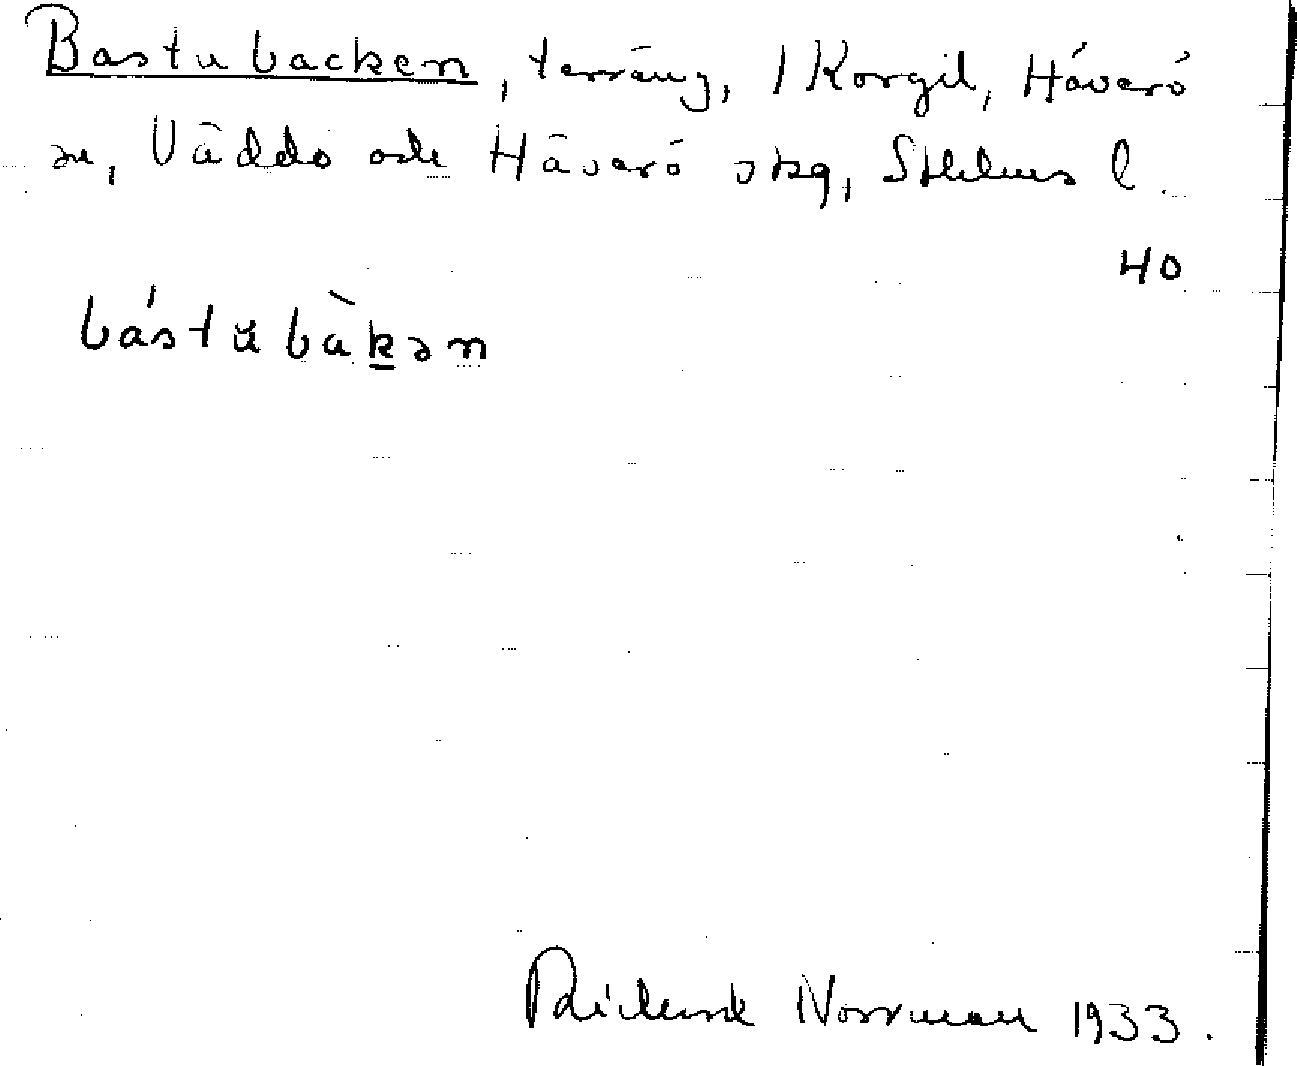 Bastubacken, terräng, 1 Korgil, Häverö
sn, Väddö och Häverö skg, Sthlms l.
40
bástŭbàkən
Norrman 1933.